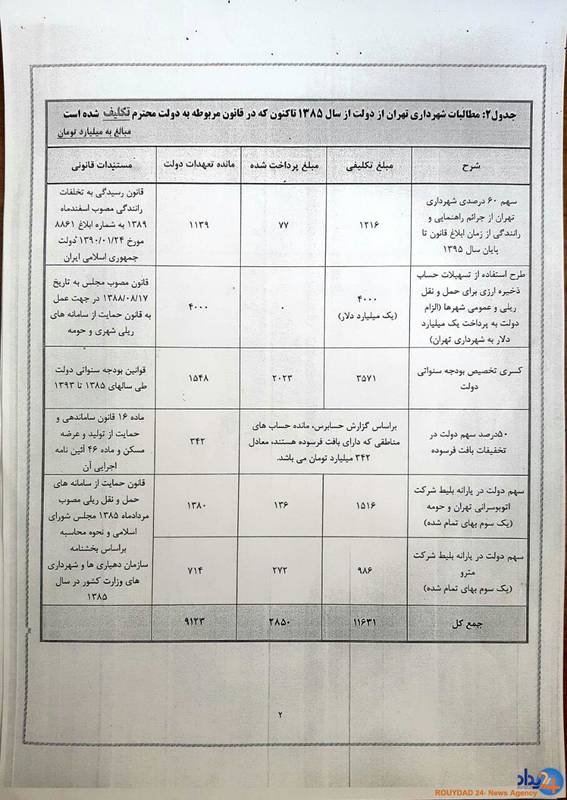 جدول۲: مطالبات شهرداری تهران از دولت از سال ۱۳۸۵ تاکنون که در قانون مربوطه به دولت محترم تکلیف شده است
مبالغ به میلیارد تومان
شرح
مبلغ تکلیفی
مبلغ پرداخت شده
مانده تعهدات دولت
مستندات قانونی
سهم ۶۰ درصدی شهرداری
تهران از جرائم راهنمایی و
رانندگی از زمان ابلاغ قانون تا
پایان سال ۱۳۹۵
۱۲۱۶
۷۷
۱۱۳۹
قانون رسیدگی به تخلفات
رانندگی مصوب اسفندماه
۱۳۸۹ به شماره ابلاغ ۸۸۶۱
مورخ ۱۳۹۰/۰۱/۲۴ دولت
جمهوری اسلامی ایران
طرح استفاده از تسهیلات حساب
ذخیره ارزی برای حمل و نقل
ریلی و عمومی شهرها (الزام
دولت به پرداخت یک میلیارد
دلار به شهرداری تهران)
۴۰۰۰
(یک میلیارد دلار)
۰
۴۰۰۰
قانون مصوب مجلس به تاریخ
۱۳۸۸/۰۸/۱۷ در جهت عمل
به قانون حمایت از سامانه های
ریلی شهری و حومه
کسری تخصیص بودجه سنواتی
دولت
۳۵۷۱
۲۰۲۳
۱۵۴۸
قوانین بودجه سنواتی دولت
طی سالهای ۱۳۸۵ تا ۱۳۹۳
۵۰درصد سهم دولت در
تخفیفات بافت فرسوده
براساس گزارش حسابرس، مانده حساب های
مناطقی که دارای بافت فرسوده هستند، معادل
۳۴۲ میلیارد تومان می باشد.
۳۴۲
ماده ۱۶ قانون ساماندهی و
حمایت از تولید و عرضه
مسکن و ماده ۴۶ آئین نامه
اجرایی آن
سهم دولت در یارانه بلیط شرکت
اتوبوسرانی تهران و حومه
(یک سوم بهای تمام شده)
۱۵۱۶
۱۳۶
۱۳۸۰
قانون حمایت از سامانه های
حمل و نقل ریلی مصوب
مردادماه ۱۳۸۵ مجلس شورای
اسلامی و نحوه محاسبه
براساس بخشنامه
سازمان دهیاری ها و شهرداری
های وزارت کشور در سال
۱۳۸۵
سهم دولت در یارانه بلیط شرکت
مترو
(یک سوم بهای تمام شده)
۹۸۶
۲۷۲
۷۱۴
جمع کل
۱۱۶۳۱
۲۸۵۰
۹۱۲۳
۲
رویداد24
ROUYDAD 24- News Agency